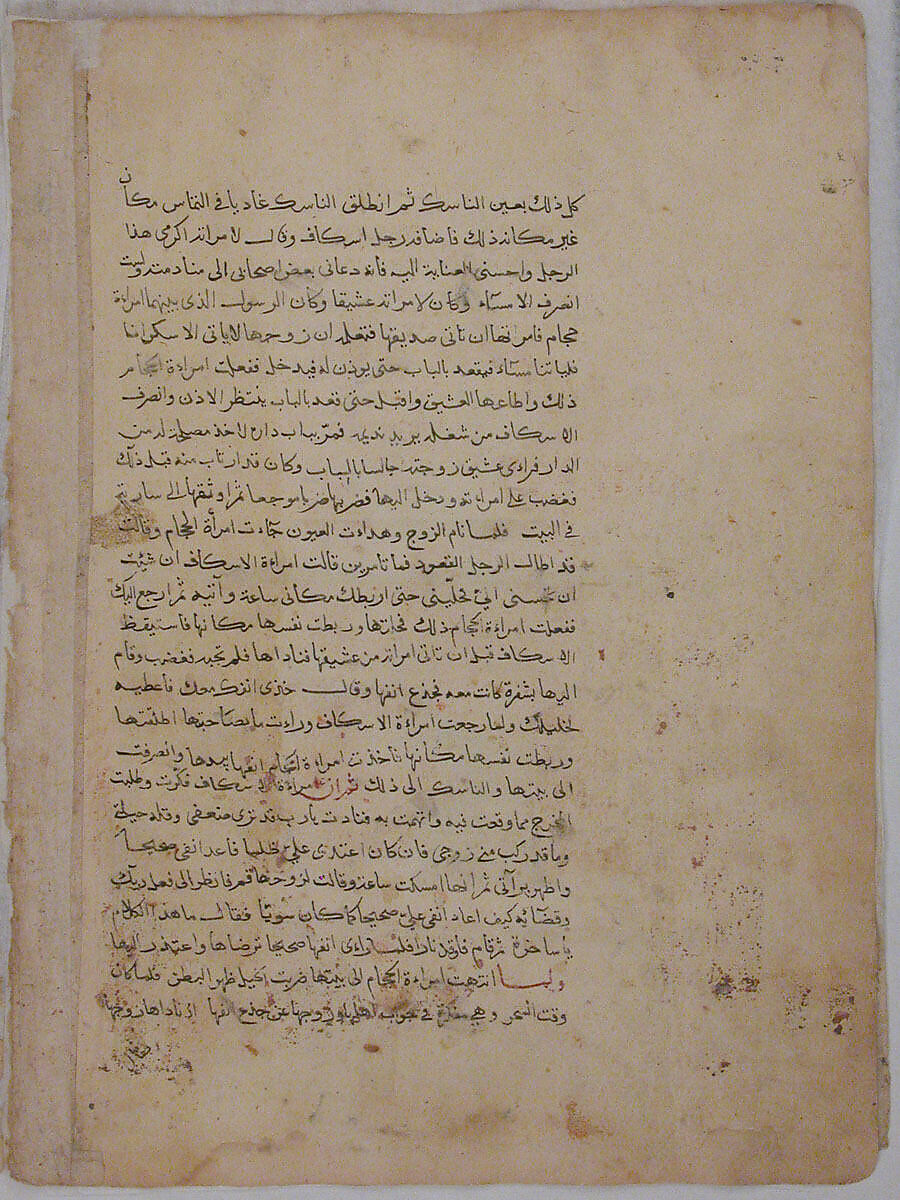 كل ذلك بعين الناسك ثم انطلق الناسك غاديا في التماس مكان
غير مكانه ذلك فاضافه رجل اسكاف وقال لامراته اكرمى هذا
الرجل واحسنى العناية اليه فانه دعانى بعض اصحابى الى منادمته ولست
انصرف الا مسآء وكان لامراته عشيقا وكان الرسول الذى بينهما امراءة
حجام فامرتها ان تاتى صديقها فتعلمه ان زوجها لا ياتى الا سكرانا
فلياتنا مسآء فيقعد بالباب حتى يوذن له فيدخل ففعلت امراءة الحجام
ذلك واطاعها العشيق واقبل حتى قعد بالباب ينتظر الاذن وانصرف
الاسكاف من شغله يريد نديمه فمرّ بباب داره لاخذ مصلحة له من
الدار فراءى عشيق زوجته جالسا بالباب وكان قد ارتاب منه قبل ذلك
فغضب على امراءته ودخل اليها فضربها ضربا موجعا ثم اوثقها الى سارية
فى البيت فلما نام الزوج وهداءت العيون جآءت امرأة الحجام وقالت
قد اطال الرجل القعود فما تامرين قالت امراءة الاسكاف ان شيئت
ان تحسنى اليّ تحلّينى حتى اربطك مكانى ساعة وآتيه ثم ارجع اليك
ففعلت امراءة الحجام ذلك فحلتها وربطت نفسها مكانها فاستيقظ
الاسكاف قبل ان تاتى امراته من عشيقها فناداها فلم تجبه فغضب وقام
اليها بشفرة كانت معه فجذع انفها وقال خذى انفك معك فاعطيه
لخليلك ولما رجعت امراءة الاسكاف وراءت ما بصاحبتها اطلقتها
وربطت نفسها مكانها فاخذت امراءة الحجام انفها بيدها وانصرفت
الى بيتها والناسك الى ذلك ثم ان امراءة الاسكاف فكّرت وطلبت
المخرج مما وقعت فيه واتهمت به فنادت يارب قد ترى ضعفى وقلة حيلة
وما قد ركب منى زوجى فان كان اعتدى عليّ ظلما فاعد انفى صحيحا
واظهر برآتى ثم انها امسكت ساعة وقالت لزوجها قم فانظر الى فعل ربك
وقضائه كيف اعاد انفى عليّ صحيحا كما كان سويّا فقال ما هذا الكلام
يا ساحرة ثم قام فاوقد نارا فلما راءى انفها صحيحا ترضاها واعتذر اليها
ولما انتهت امراءة الحجام الى بيتها ضربت الحيل ظهرا لبطن فلما كان
وقت السحر وهى مفكرة فى جواب اهلها وزوجها عن جذع انفها اذ ناداها زوجها